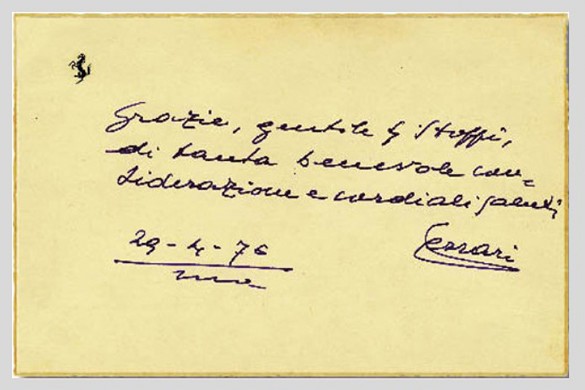 Grazie, gentile Sig. Stoppi,
di tanta benevole con=
siderazione e cordiali saluti
Ferrari
29-4-76